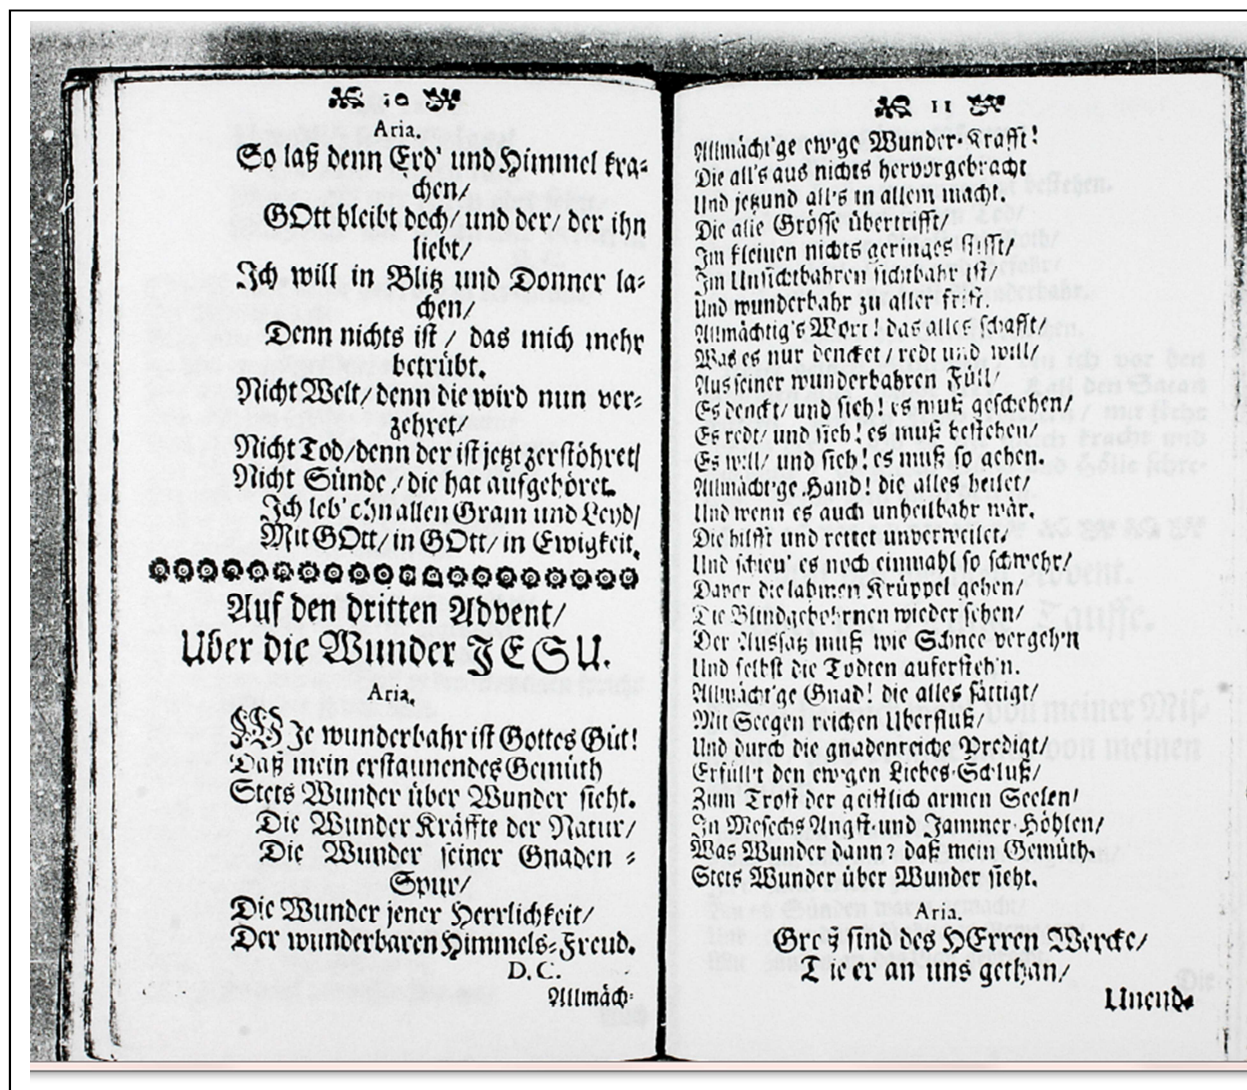 10
Aria.
So laß denn Erd' und Himmel kra-
chen/
GOtt bleibt doch/ und der/ der ihn
liebt/
Ich will in Blitz und Donner la-
chen/
Denn nichts ist / das mich mehr
betrübt.
Nicht Welt/ denn die wird nun ver-
zehret/
Nicht Tod/denn der ist jetzt zerstöhret/
Nicht Sünde /die hat aufgehöret.
Ich leb' ohn allen Gram und Leyd/
Mit GOtt/ in GOtt/ in Ewigkeit.
Auf den dritten Advent/
Uber die Wunder JESU.
Aria.
WJe wunderbahr ist Gottes Güt!
Daß mein erstaunendes Gemüth
Stets Wunder über Wunder sieht.
Die Wunder Kräffte der Natur/
Die Wunder seiner Gnaden-
Spur/
Die Wunder jener Herrlichkeit/
Der wunderbaren Himmels-Freud.
D.C.
Allmäch-
11
Allmächt'ge ew'ge Wunder-Krafft!
Die all's aus nichts hervorgebracht
Und jetzund all's in allem macht.
Die alle Grösse übertrifft/
Im kleinen nichts geringes stifft/
Im Unsichtbahren sichtbahr ist/
Und wunderbahr zu aller frist.
Allmächtig's Wort! das alles schafft/
Was es nur dencket/ redt und will/
Aus seiner wunderbahren Füll/
Es denckt/ und sieh! es muß geschehen/
Es redt/ und sieh! es muß bestehen/
Es will/ und sieh! es muß so gehen.
Allmächt'ge Hand! die alles heilet/
Und wenn es auch unheilbahr wär.
Die hilfft und rettet unverweilet/
Und schien' es noch einmahl so schwehr/
Daher die lahmen Krüppel gehen/
Die Blindgebohrnen wieder sehen/
Der Aussatz muß wie Schnee vergeh'n
Und selbst die Todten aufersteh'n.
Allmächt'ge Gnad! die alles sättigt/
Mit Seegen reichen Uberfluß/
Und durch die gnadenreiche Predigt/
Erfüll't den ew'gen Liebes-Schluß/
Zum Trost der geistlich armen Seelen/
In Mesechs Angst-und Jammer-Höhlen/
Was Wunder dann? daß mein Gemüth.
Stets Wunder über Wunder sieht.
Aria.
Groß sind des HErren Wercke/
Die er an uns gethan/
Unend-